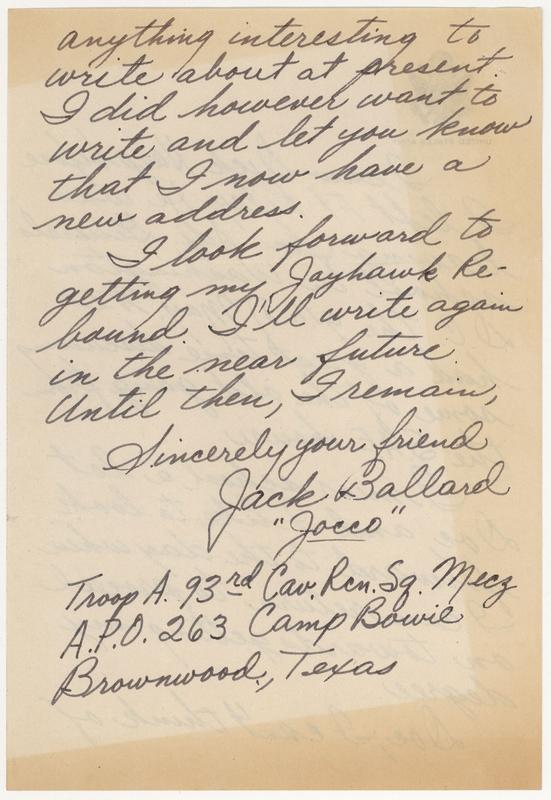 anything interesting to
write about at present.
I did however want to
write and let you know
that I now have a
new address.
I look forward to
getting my Jayhawk Re-
bound I'll write again
in the near future.
Until then, I remain,
Sincerely your friend
Jack Ballard
"Jocco"
Troop A. 93rd Cav. Rcn. Sq. Mecz
A.P.O. 263 Camp Bowie
Brownwood, Texas